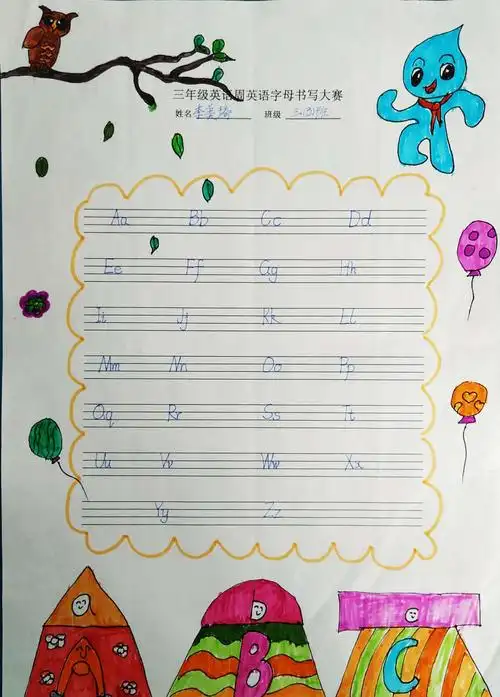 三年级英语周英语字母书写大赛
姓名 班级
Aa Bb Cc Dd
Ee Ff Gg Hh
Ii Jj Kk Ll
Mm Nn Oo Pp
Qq Rr Ss Tt
Uu Vv Ww Xx
Yy Zz
A B C